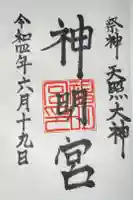 祭神 天照大神
神明宮
令和四年六月十九日